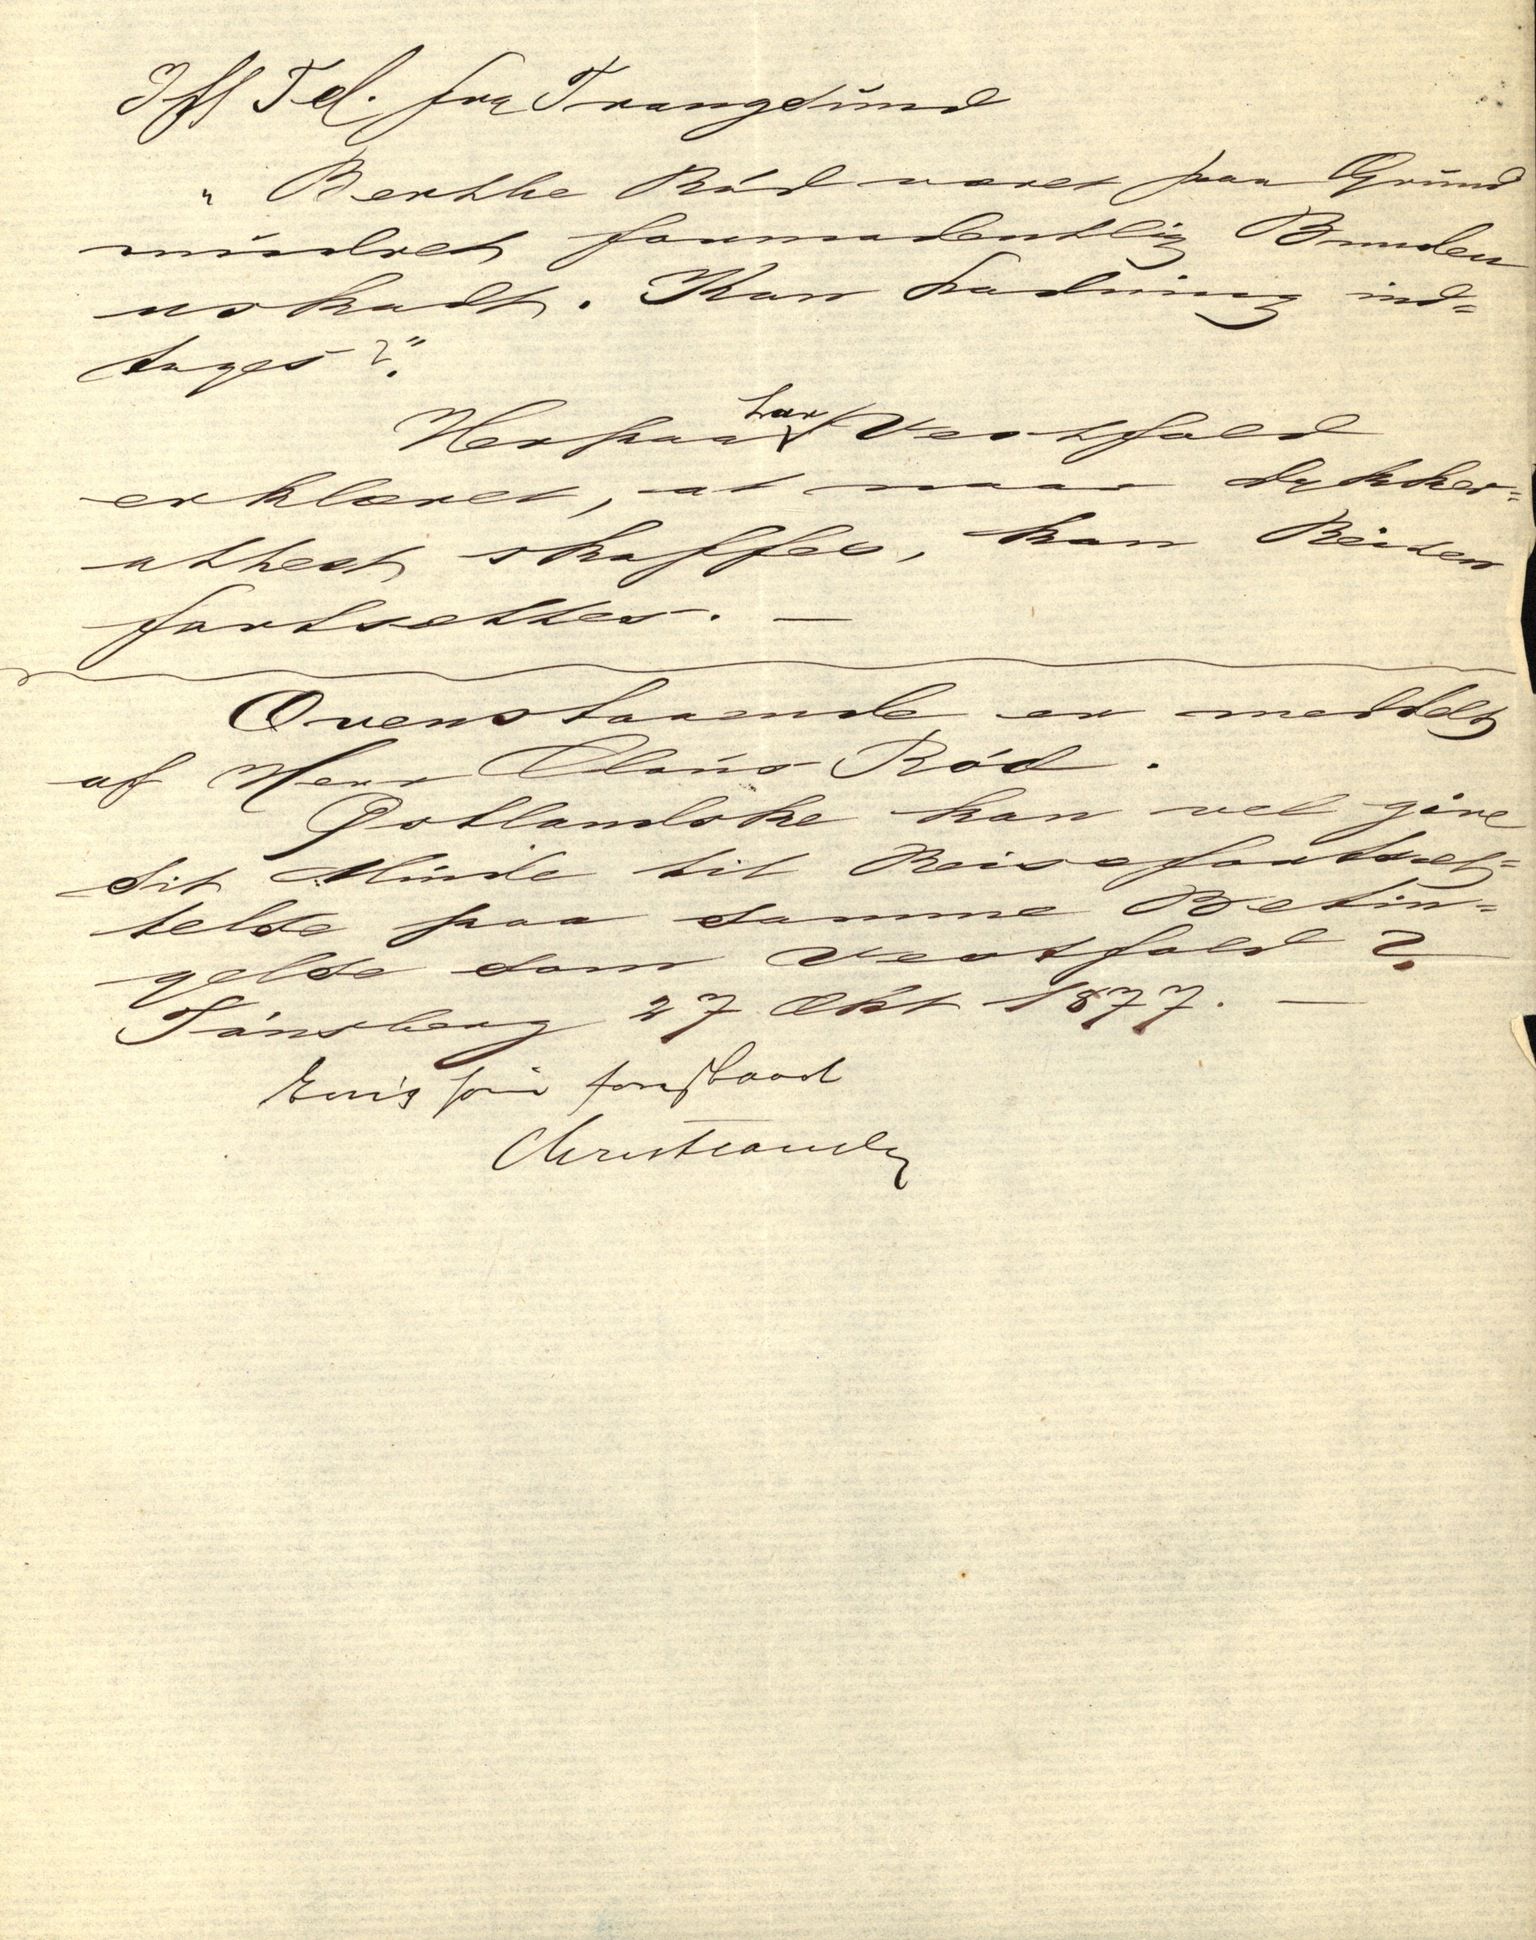 Ifl Tel. fra Trangsund
„Berthe Röd været paa Grund
mindret formodentlig Bunden
uskadt. Kan Ladning ind=
tages?".
Herpaa har Vestfold
erklæret, at naar dykker=
attest skaffes, kan Reisen
fortsættes. —
Ovenstaaende er meddelt
af Herr Claus Röd.
Østlandske kan vel give
sit Minde til Reisefortsæt=
telse paa samme Betin=
gelse som Vestfold?
Tönsberg 27 Okt 1877. —
Enig